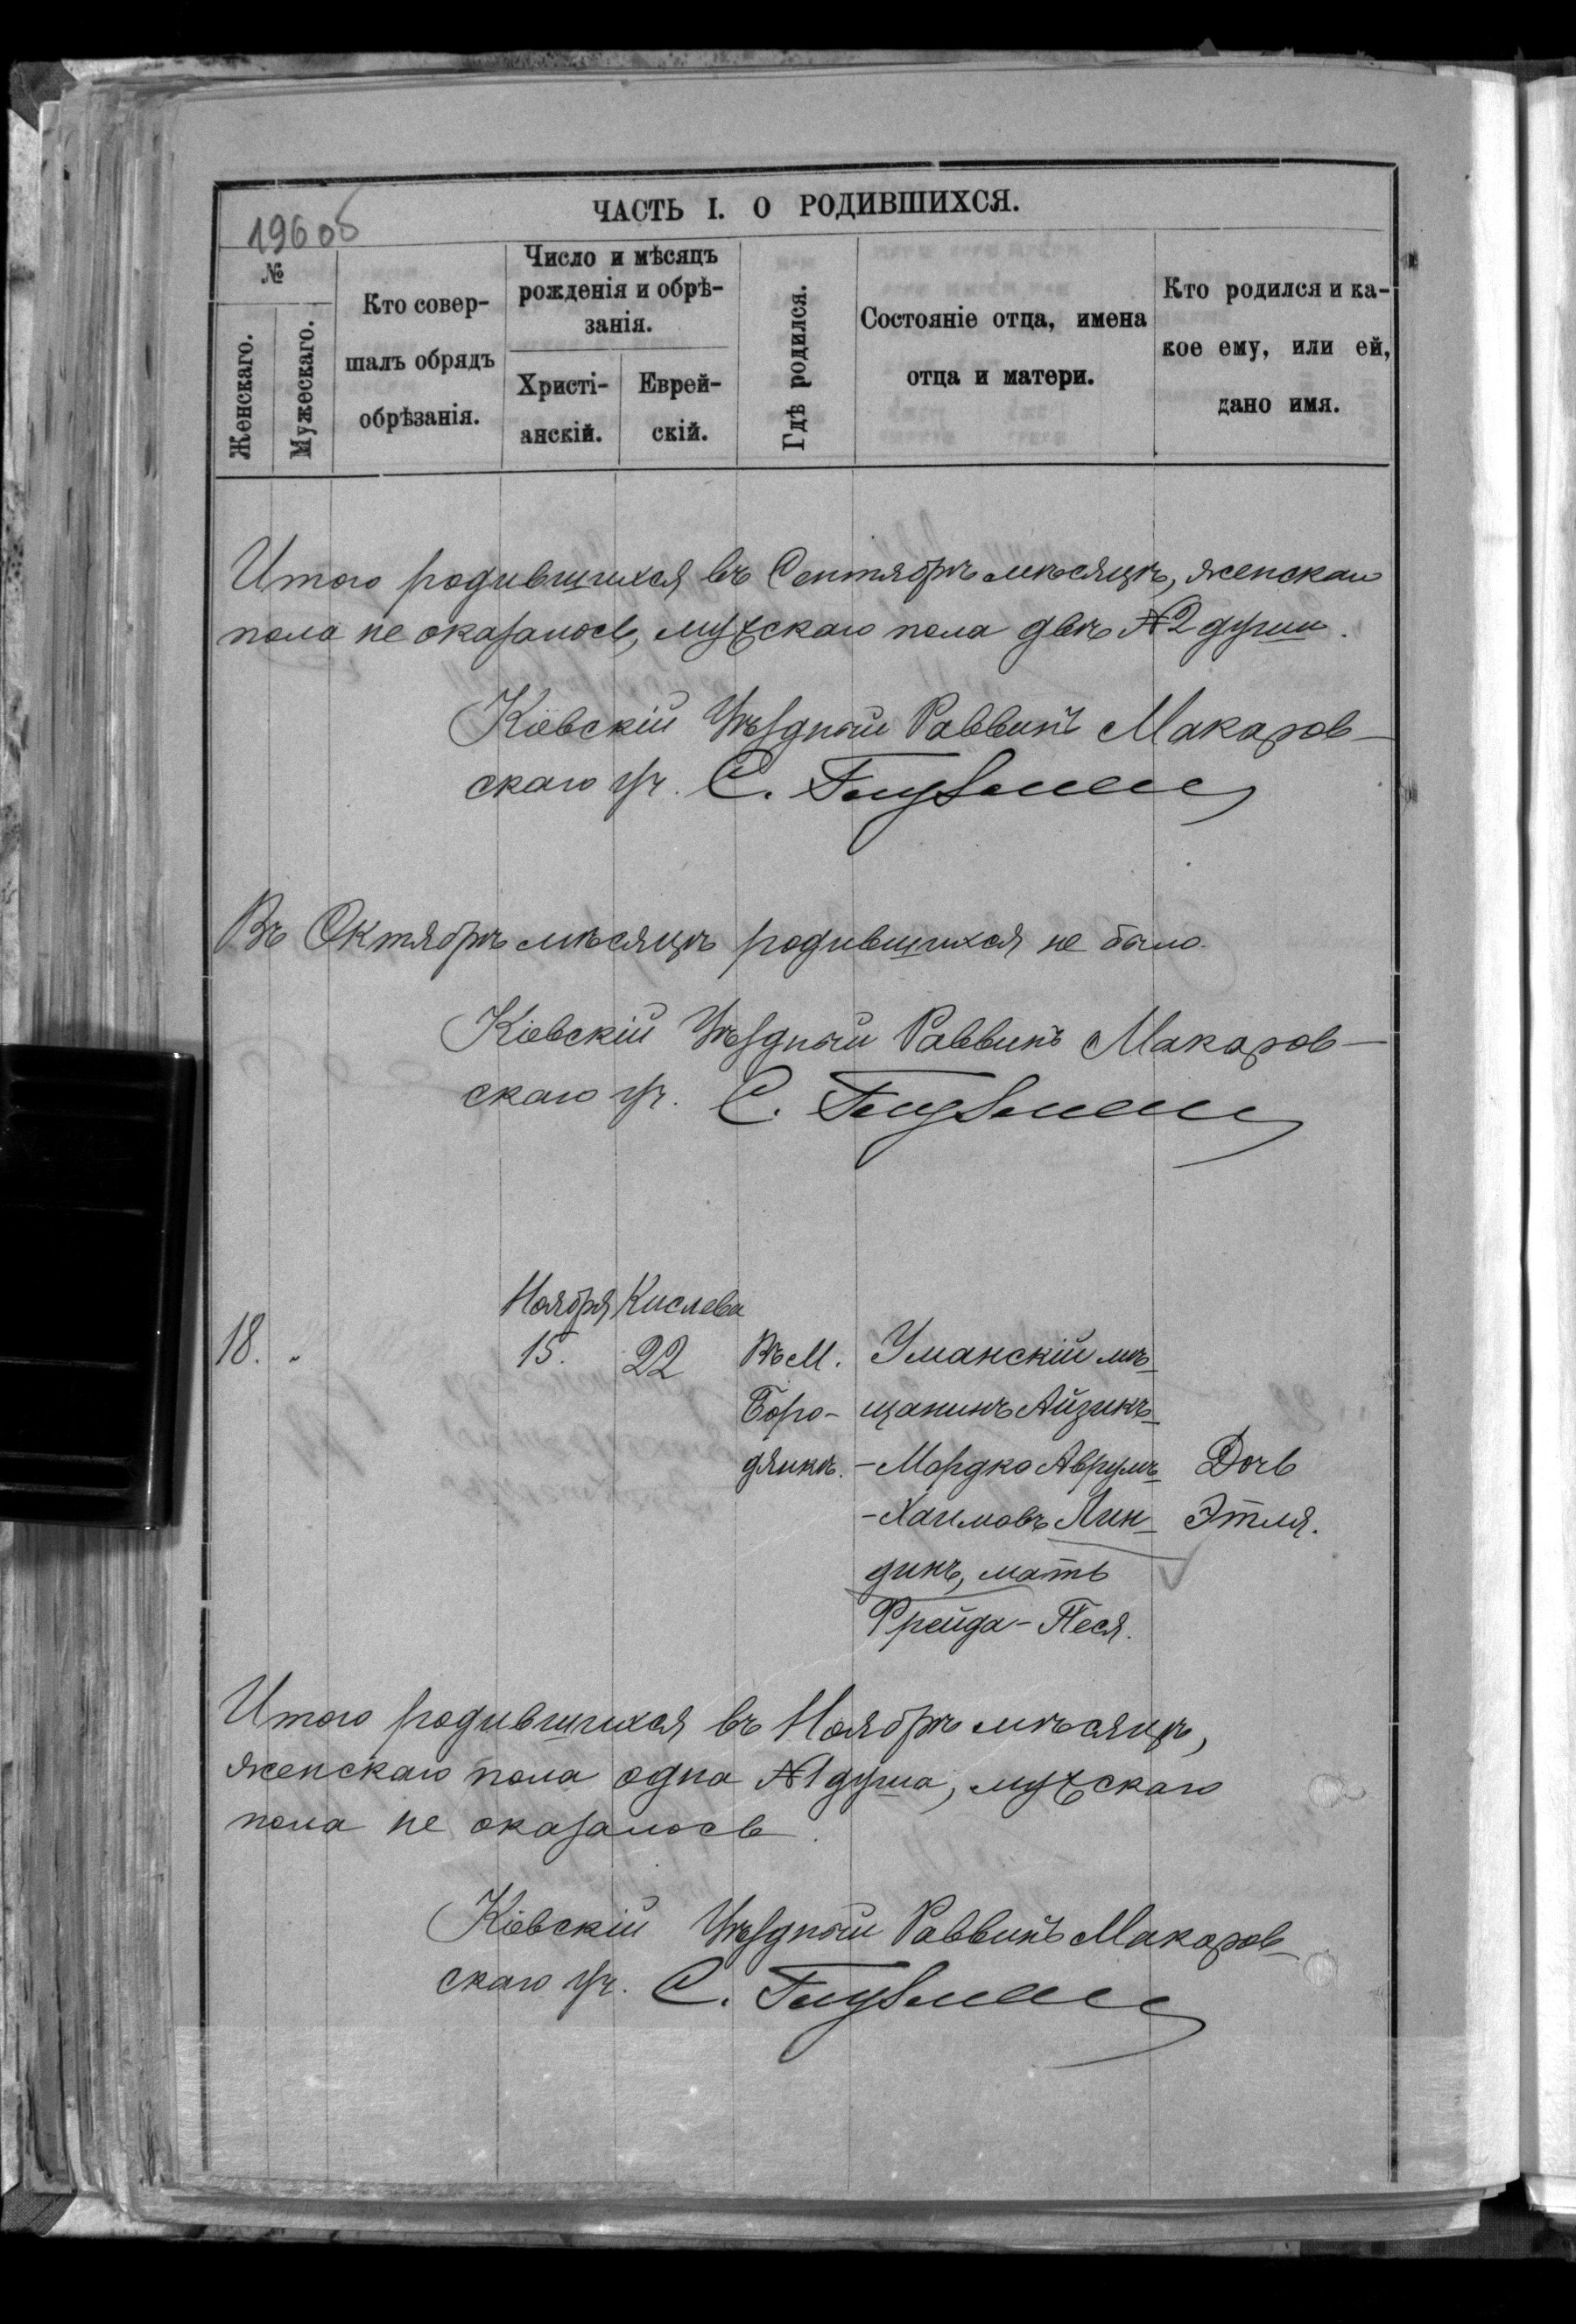 196об
ЧАСТЬ I. О РОДИВШИХСЯ.
№
Женскаго.
Мужескаго.
Кто совер-
шалъ обрядъ
обрѣзанія.
Число и мѣсяцъ
рожденія и обрѣ-
занія.
Христі-
анскій.
Еврей-
скій.
Гдѣ родился.
Состояніе отца, имена
отца и матери.
Кто родился и ка-
кое ему, или ей,
дано имя.
Итого родившихся въ Сентябрѣ мѣсяцѣ, женскаго
пола не оказалось, мужскаго пола двѣ №2 души.
Кіевскій Уѣздный Раввинъ Макаров-
скаго уч. С.
Въ Октябрѣ мѣсяцѣ родившихся не было.
Кіевскій Уѣздный Раввинъ Макаров-
скаго уч. С.
Ноября Кислева
18. " 15. 22 Въ М. Уманскій мѣ-
Боро- щанинъ Айзикъ-
дянкѣ. -Мордко Аврумъ- Дочь
-Хаимовъ Лин- Этля.
динъ, мать
Фрейда-Песя.
Итого родившихся въ Ноябрѣ мѣсяцѣ,
женскаго пола одна №1 душа, мужскаго
пола не оказалось.
Кіевскій Уѣздный Раввинъ Макаров-
скаго уч. С.